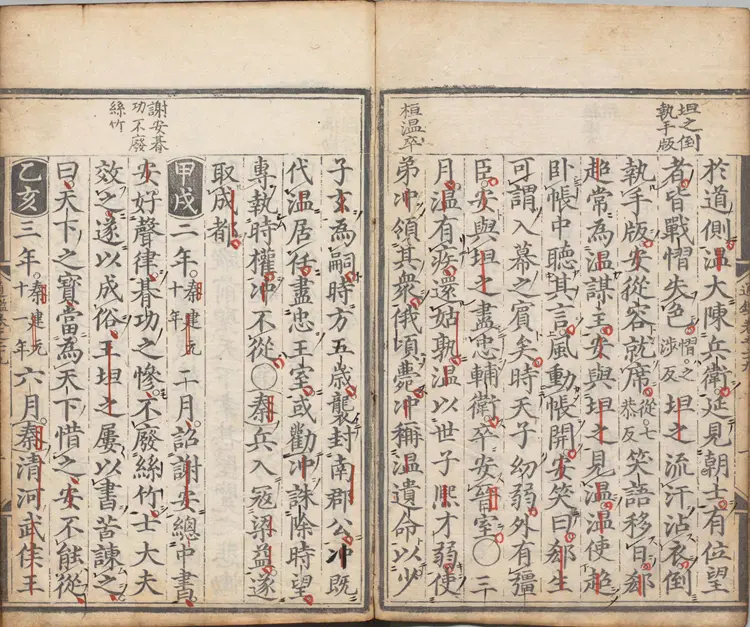 坦之倒
執手版
於道側温大陳兵衛延見朝士有位望
者皆戰慴失色慴之涉反坦之流汗沾衣倒
執手版安從容就席從七恭反笑語移日郗
超常為温謀主安與坦之見温温使超
卧帳中聽其言風動帳開安笑曰郗生
可謂入幕之賓矣時天子幼弱外有彊
臣安與坦之盡忠輔衛卒安晉室〇三
月温有疾還姑孰温以世子熙才弱使
桓温卒
弟冲領其衆俄頃薨冲稱温遺命以少
子玄為嗣時方五歳襲封南郡公冲既
代温居任盡忠王室或勸冲誅除時望
專執時權冲不從〇秦兵入寇梁益遂
取成都
謝安朞
功不廢
絲竹
甲戌二年秦建元十年二月詔謝安總中書
安好聲律朞功之慘不廢絲竹士大夫
效之遂以成俗王坦之屢以書苦諫之
曰天下之寳當為天下惜之安不能從
乙亥三年秦建元十一年六月秦清河武侯王